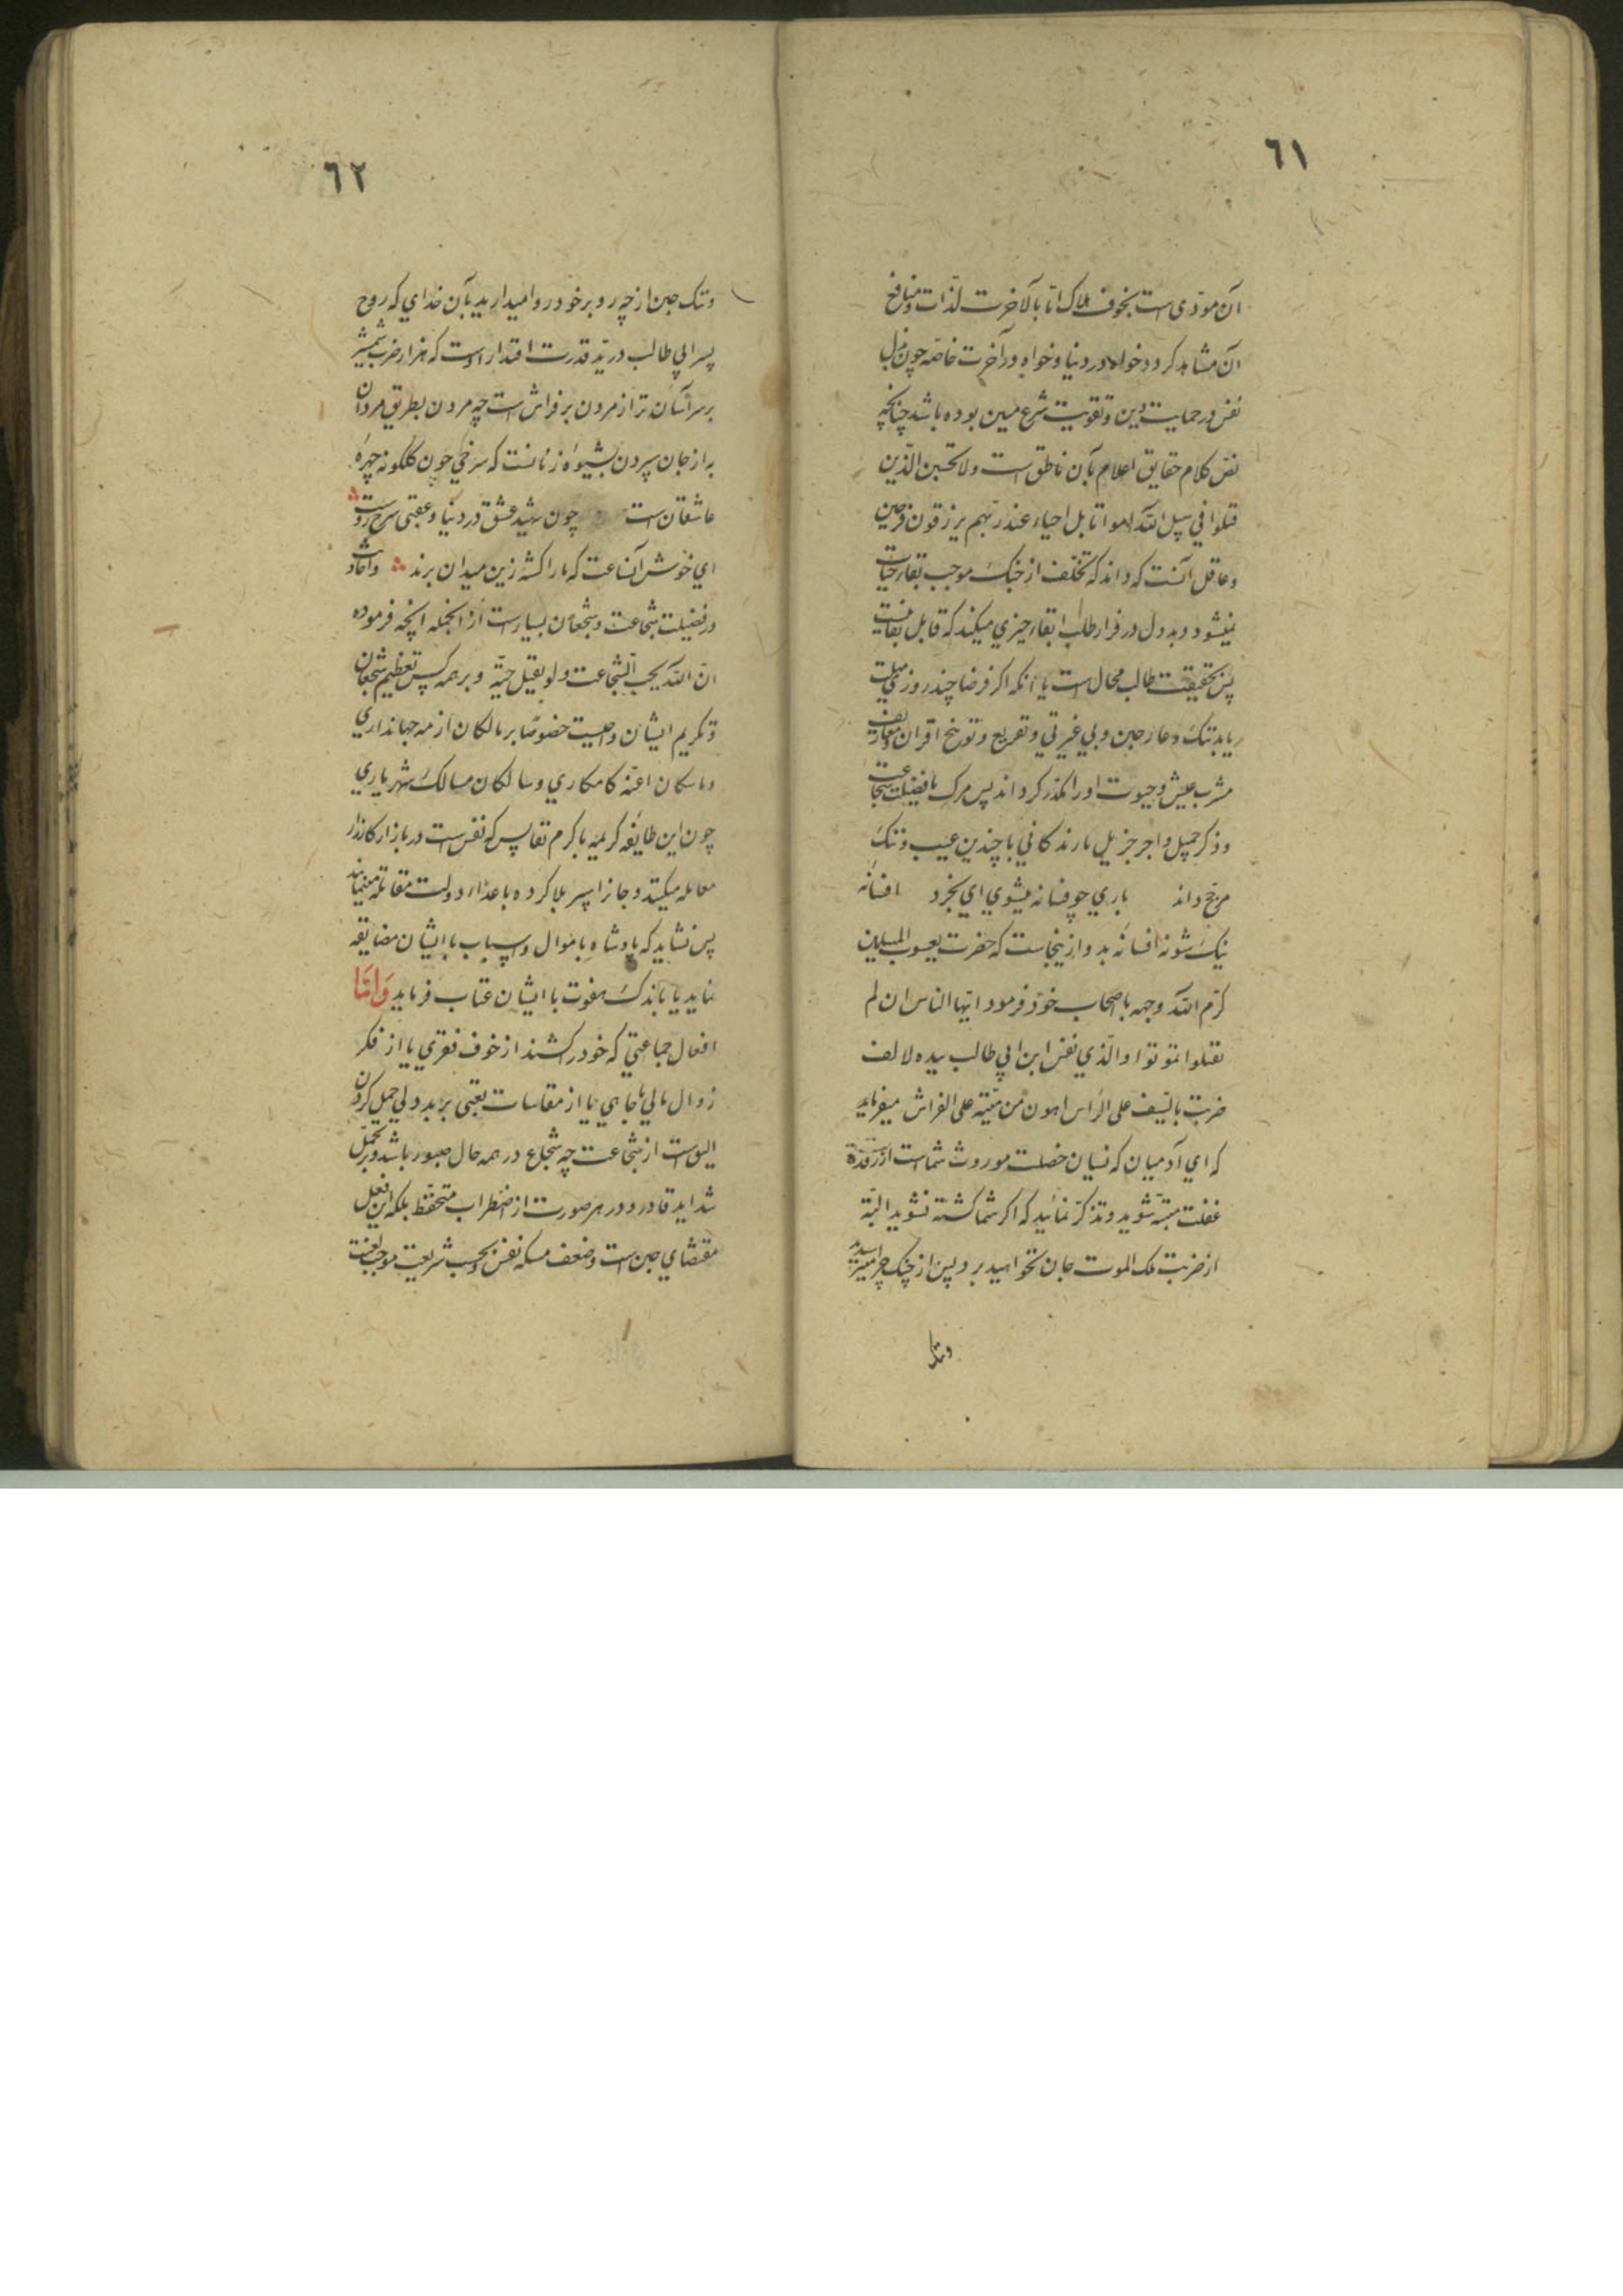 ٦١
آن مودّی است بخوف هلاک امّا بالآخرت لذات و منافع
آن مشاهد کردد خواه در دنیا و خواه در آخرت خاصّه چون بذل
نفس در حمایت دین و تقویت شرع مبین بوده باشد چنانکه
نصّ کلام حقایق اعلام بآن ناطق است ولا تحسبن الّذین
قتلوا فی سبیل اللّه امواتا بل احیاء عند ربّهم یرزقون فرحین
و عاقل آنست که داند که تخلّف از جنک موجب بقاء حیات
نمیشود و بددل در فرار طلب ابقاء چیزی میکند که قابل بقا نیست
پس بحقیقت طالب محال است یا آنکه اکر فرضا چند روزی مهلت
یابد بننک و عار جبن و بی غیرتی و تقریع و توبیخ اقران و معارف
مشرب عیش و حیوت او را مکدّر کرداند پس مرک با فضیلت شجاعت
و ذکر جمیل و اجر جزیل بار زندکانی با چندین عیب و ننک
مرجّح داند باری چو فسانه میشوی ای بخرد افسانه
نیک شو نه افسانه بد و از ینجاست که حضرت یعسوب المسلمین
کرّم اللّه وجهه با صحاب خود فرمود ایّها الناس ان لم
تقتلوا تموتوا والّذی نفس ابن ابی طالب بیده لالف
ضربت بالسّیف علی الرّاس اهون من میّته علی الفراش میفرماید
که ای آدمیان که نسیان خصلت موروث شماست از رقدۀ
غفلت متنبّه شوید و تذکّر نمائید که اکر شما کشته نشوید البتّه
از ضربت ملک الموت جان نخواهید برد پس از جنک چرا میترسید
وننک
٦٢
وننک جبن از چه رو بر خود روا میدارید بآن خدای که روح
پسر ابی طالب در ید قدرت و اقتدار اوست که هزار ضرب شمشیر
بر سر آسان تر از مردن بر فراش است چه مردن بطریق مردان
به از جان سپردن بشیوۀ زنانست که سرخی خون کلکونه چهرۀ
عاشقان است چون شهید عشق در دنیا و عقبی سرخ روست
ای خوش آنساعت که ما را کشته زین میدان برند و احادیث
در فضیلت شجاعت و شجعان بسیار است از انجمله انچه فرموده
انّ اللّه یحبّ الشّجاعت ولو بقتل حیّة و بر همه کس تعظیم شجعان
و تکریم ایشان واجبست خصوصًا بر مالکان ازمه جهانداری
و ماسکان اعنّه کامکاری و سالکان مسالک شهریاری
چون این طایفه کریمه با کرم نفایس که نفس است در بازار کارزار
معامله میکنند و جانرا سپر بلا کرده با عداء دولت مقاتله مینمایند
پس نشاید که پادشاه باموال و اسباب با ایشان مضایقه
نماید یا باندک هفوت با ایشان عتاب فرماید و امّا
افعال جماعتی که خود را کشند از خوف فقری یا از فکر
زوال مالی یا جاهی یا از مقاسات تعبی بر بددلی حمل کردن
الیق است از شجاعت چه شجاع در همه حال صبور باشد و بر تحمّل
شداید قادر و در هر صورت از اضطراب متحفّظ بلکه این فعل
مقتضای جبن است و ضعف مسکه نفس و بحسب شریعت موجب لعنت